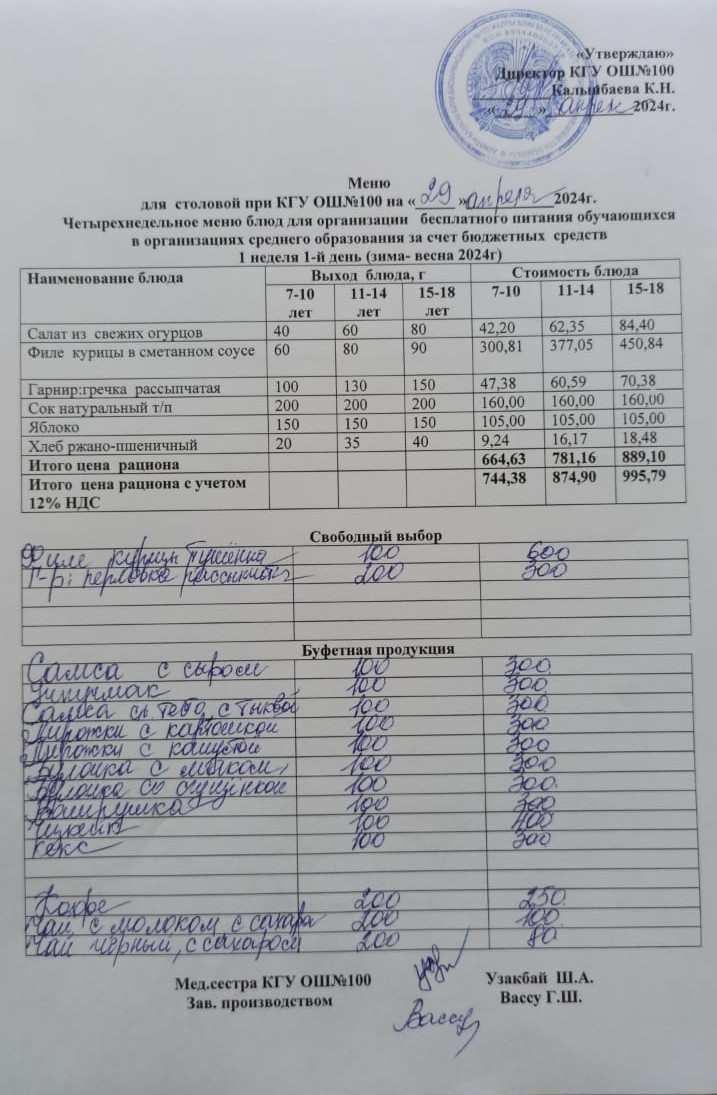 «Утверждаю»
Директор КГУ ОШ.№100
Калынбаева К.Н.
« 29 » апрел 2024г.
Меню
для столовой при КГУ ОШ.№100 на « 29 » апреля 2024г.
Четырехнедельное меню блюд для организации бесплатного питания обучающихся
в организациях среднего образования за счет бюджетных средств
1 неделя 1-й день (зима- весна 2024г)
Наименование блюда Выход блюда, г Стоимость блюда
7-10 лет 11-14 лет 15-18 лет 7-10 11-14 15-18
Салат из свежих огурцов 40 60 80 42,20 62,35 84,40
Филе курицы в сметанном соусе 60 80 90 300,81 377,05 450,84
Гарнир:гречка рассыпчатая 100 130 150 47,38 60,59 70,38
Сок натуральный т/п 200 200 200 160,00 160,00 160,00
Яблоко 150 150 150 105,00 105,00 105,00
Хлеб ржано-пшеничный 20 35 40 9,24 16,17 18,48
Итого цена рациона 664,63 781,16 889,10
Итого цена рациона с учетом 744,38 874,90 995,79
12% НДС
Свободный выбор
Филе курицы 100 600
Г-р: перловка 200 300
Буфетная продукция
Самса с сыром 100 300
100 300
Самса с тыквой 100 300
Пирожки с картошкой 100 300
Пирожки с капустой 100 300
Булочка с маком 100 300
Булочка со сгущёнкой 100 300
100 300
100 400
Кекс 100 300
Кофе 200 250
Чай с молоком с сахаро 200 100
Чай чёрный, с сахаром 200 80
Мед.сестра КГУ ОШ.№100 Узакбай Ш.А.
Зав. производством Вассу Г.Ш.
Вассу